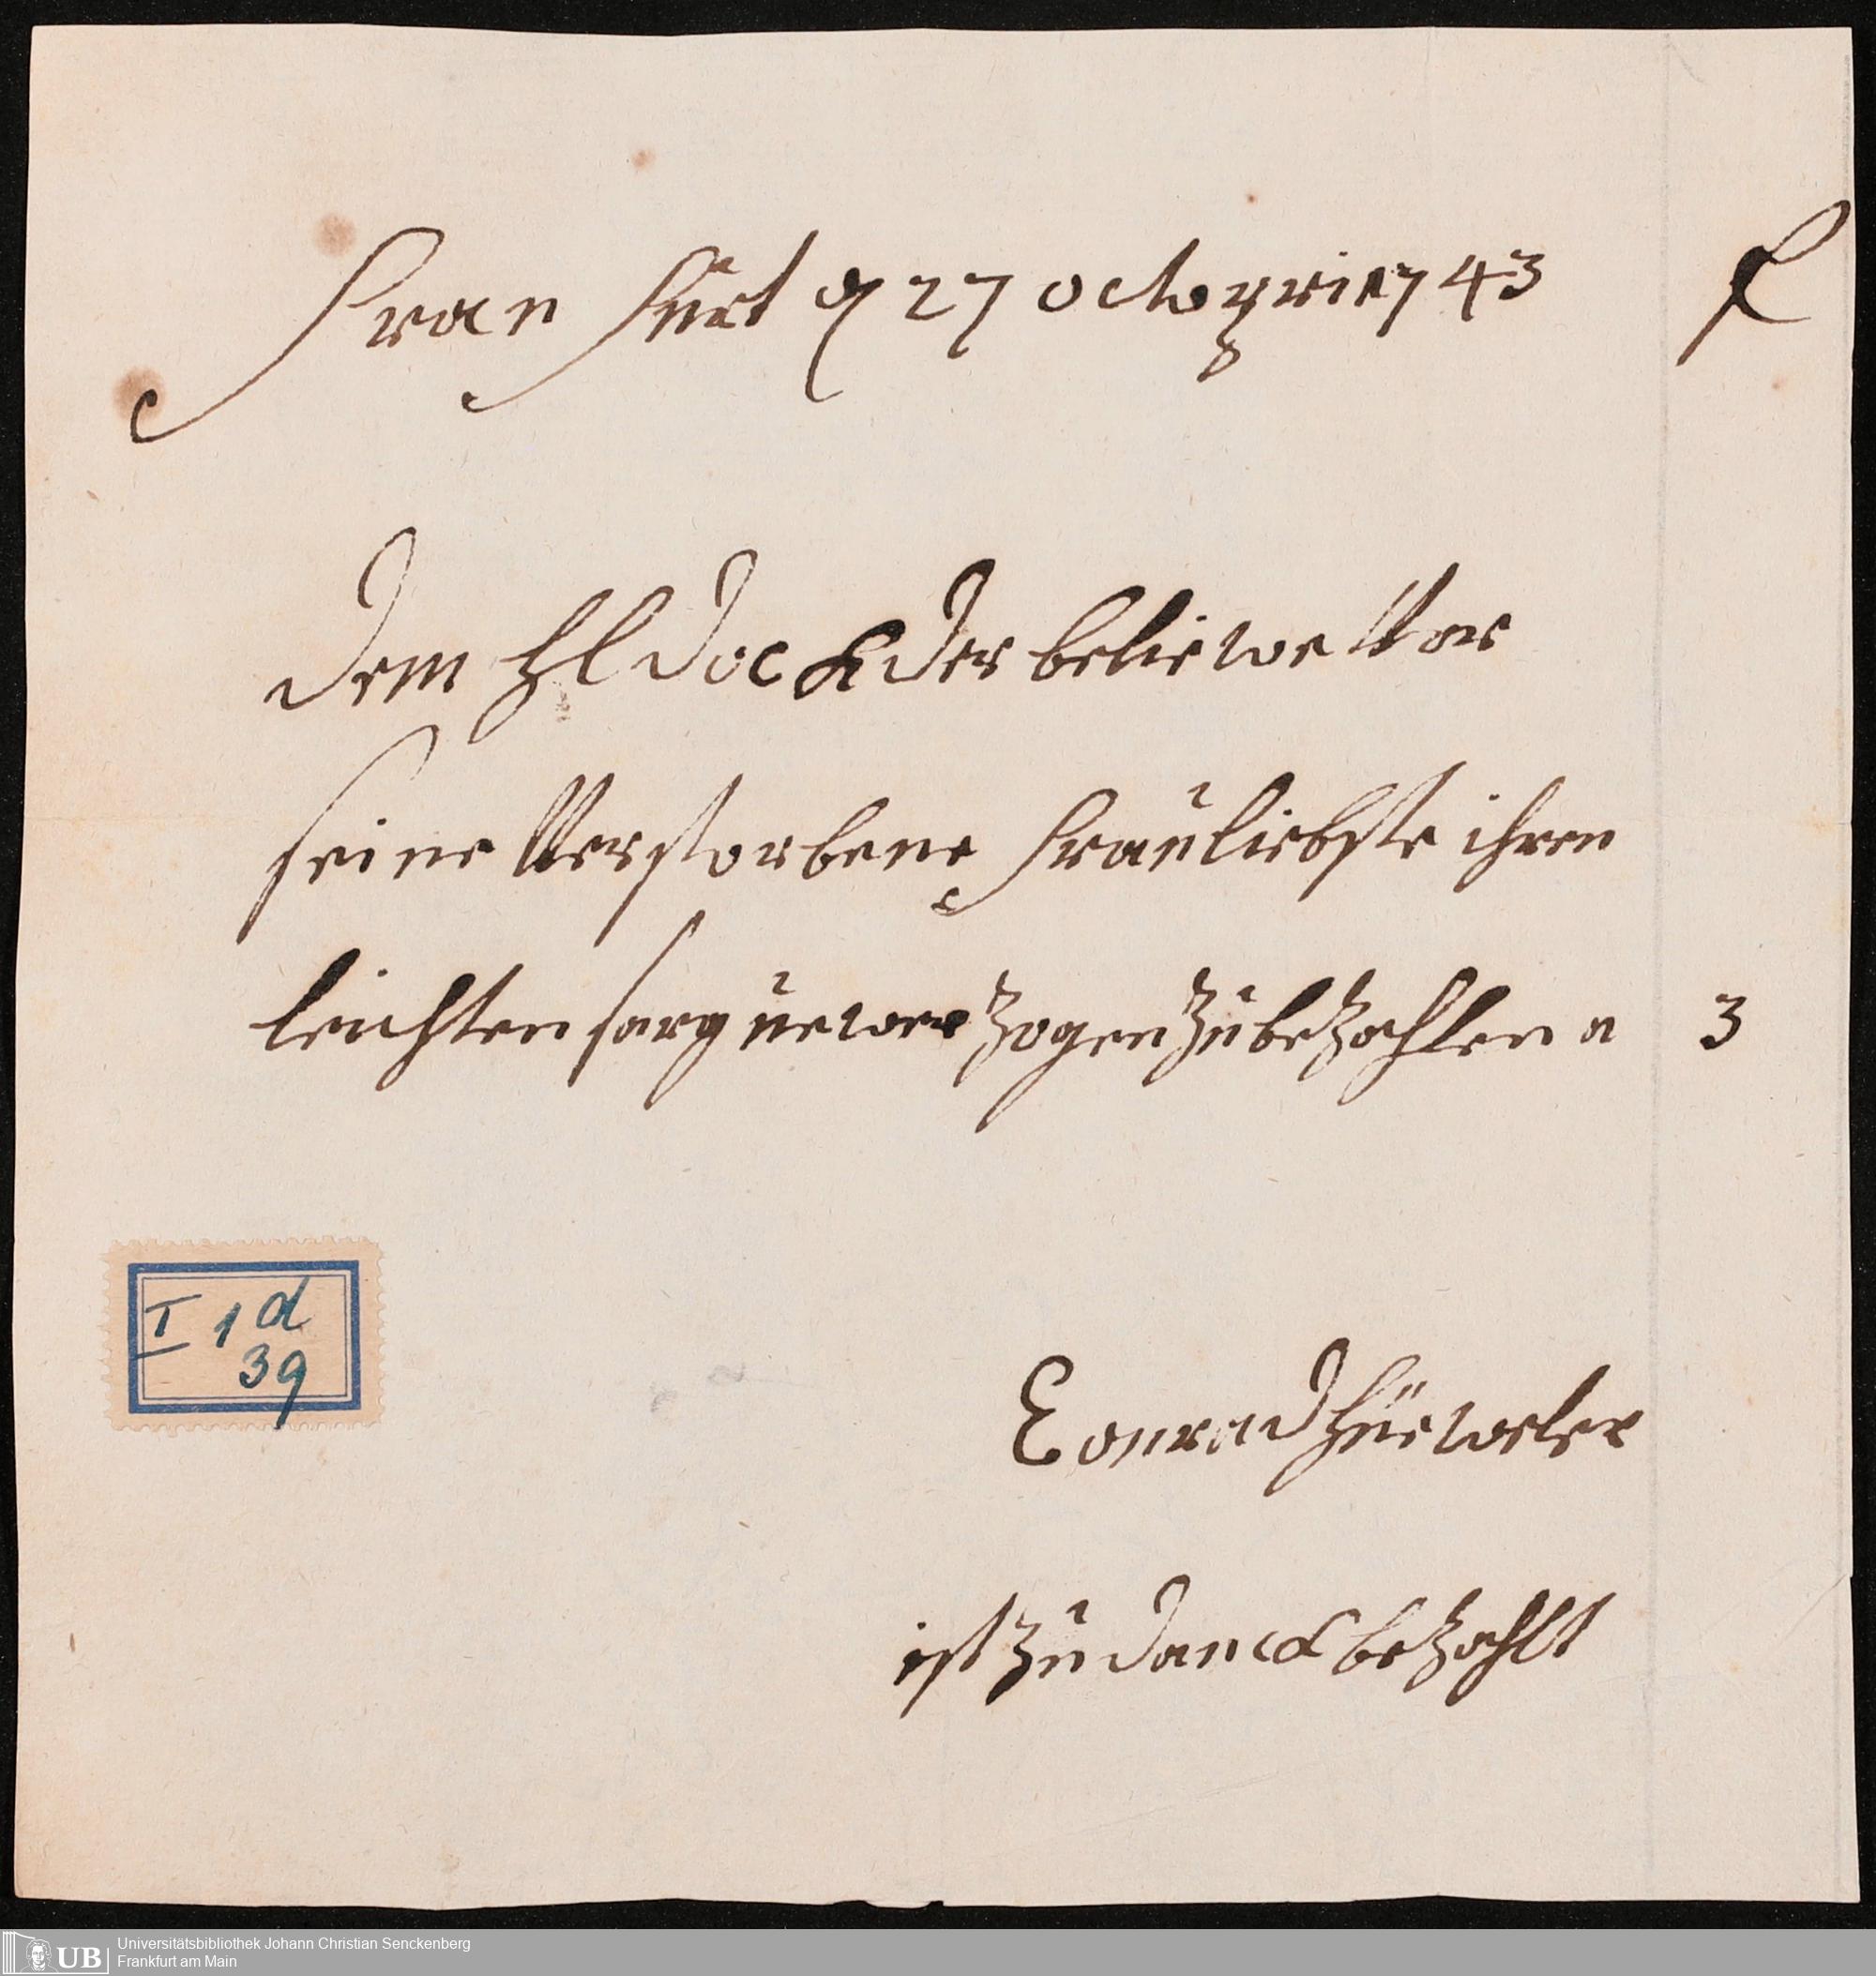 Fran furt d 27 octobri 1743 f
Dem Hl Dock der beliewe Vor
seine Verstorbene frauliebste ihren
leichten sarg uewerzogen zu bezahlen a 3
I 1 d
39
Conrad Hüeweler
ist zu danck bezahlt
UB Universitätsbibliothek Johann Christian Senckenberg
Frankfurt am Main